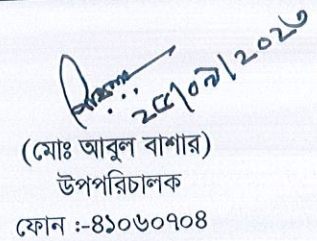 ২৫/০৭/২০২৩
(মোঃ আবুল বাশার)
উপপরিচালক
ফোন :-৪১০৬০৭০৪